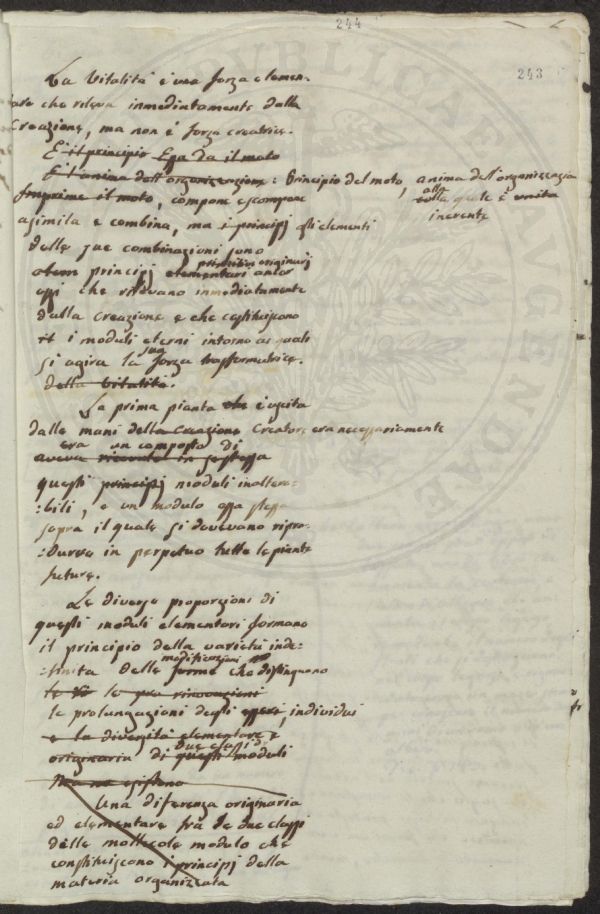 244
243
La Vitalità è una forza elemen-
tare che rileva immediatamente dalla
Creazione, ma non è forza creatrice.
È il principio Essa da il moto
È l'anima dell'organizzazione: Principio del moto, anima dell'organizzazione
alla
Imprime il moto, compone e scompone
sulla quale è unita
inerente
asimila e combina, ma i principj gli elementi
delle sue combinazioni sono
originarj
principj elementari
essi che rilevano immediatamente
dalla Creazione e che costituiscono
i moduli eterni intorno ai quali
sua
si agira la forza trasformatrice.
della vitalità.
La prima pianta che è uscita
dalle mani della Creazione Creatore era necessariamente
era un composto di
aveva in se stessa
questi principj moduli inaltera-
:bili, e un modulo essa stessa
sopra il quale si dovevano ripro-
:durre in perpetuo tutte le piante
future.
Le diverse proporzioni di
questi moduli elementari formano
il principio della varietà inde-
modificazioni
:finita delle forme che distinguono
le
le prolungazioni degli esseri, individui
e la diversità elementare e
due classi di
originaria di questi moduli
Ma ne esistono
Una diferenza originaria
ed elementare fra le due classi
delle mollecole modulo che
constituiscono i principj della
materia organizzata